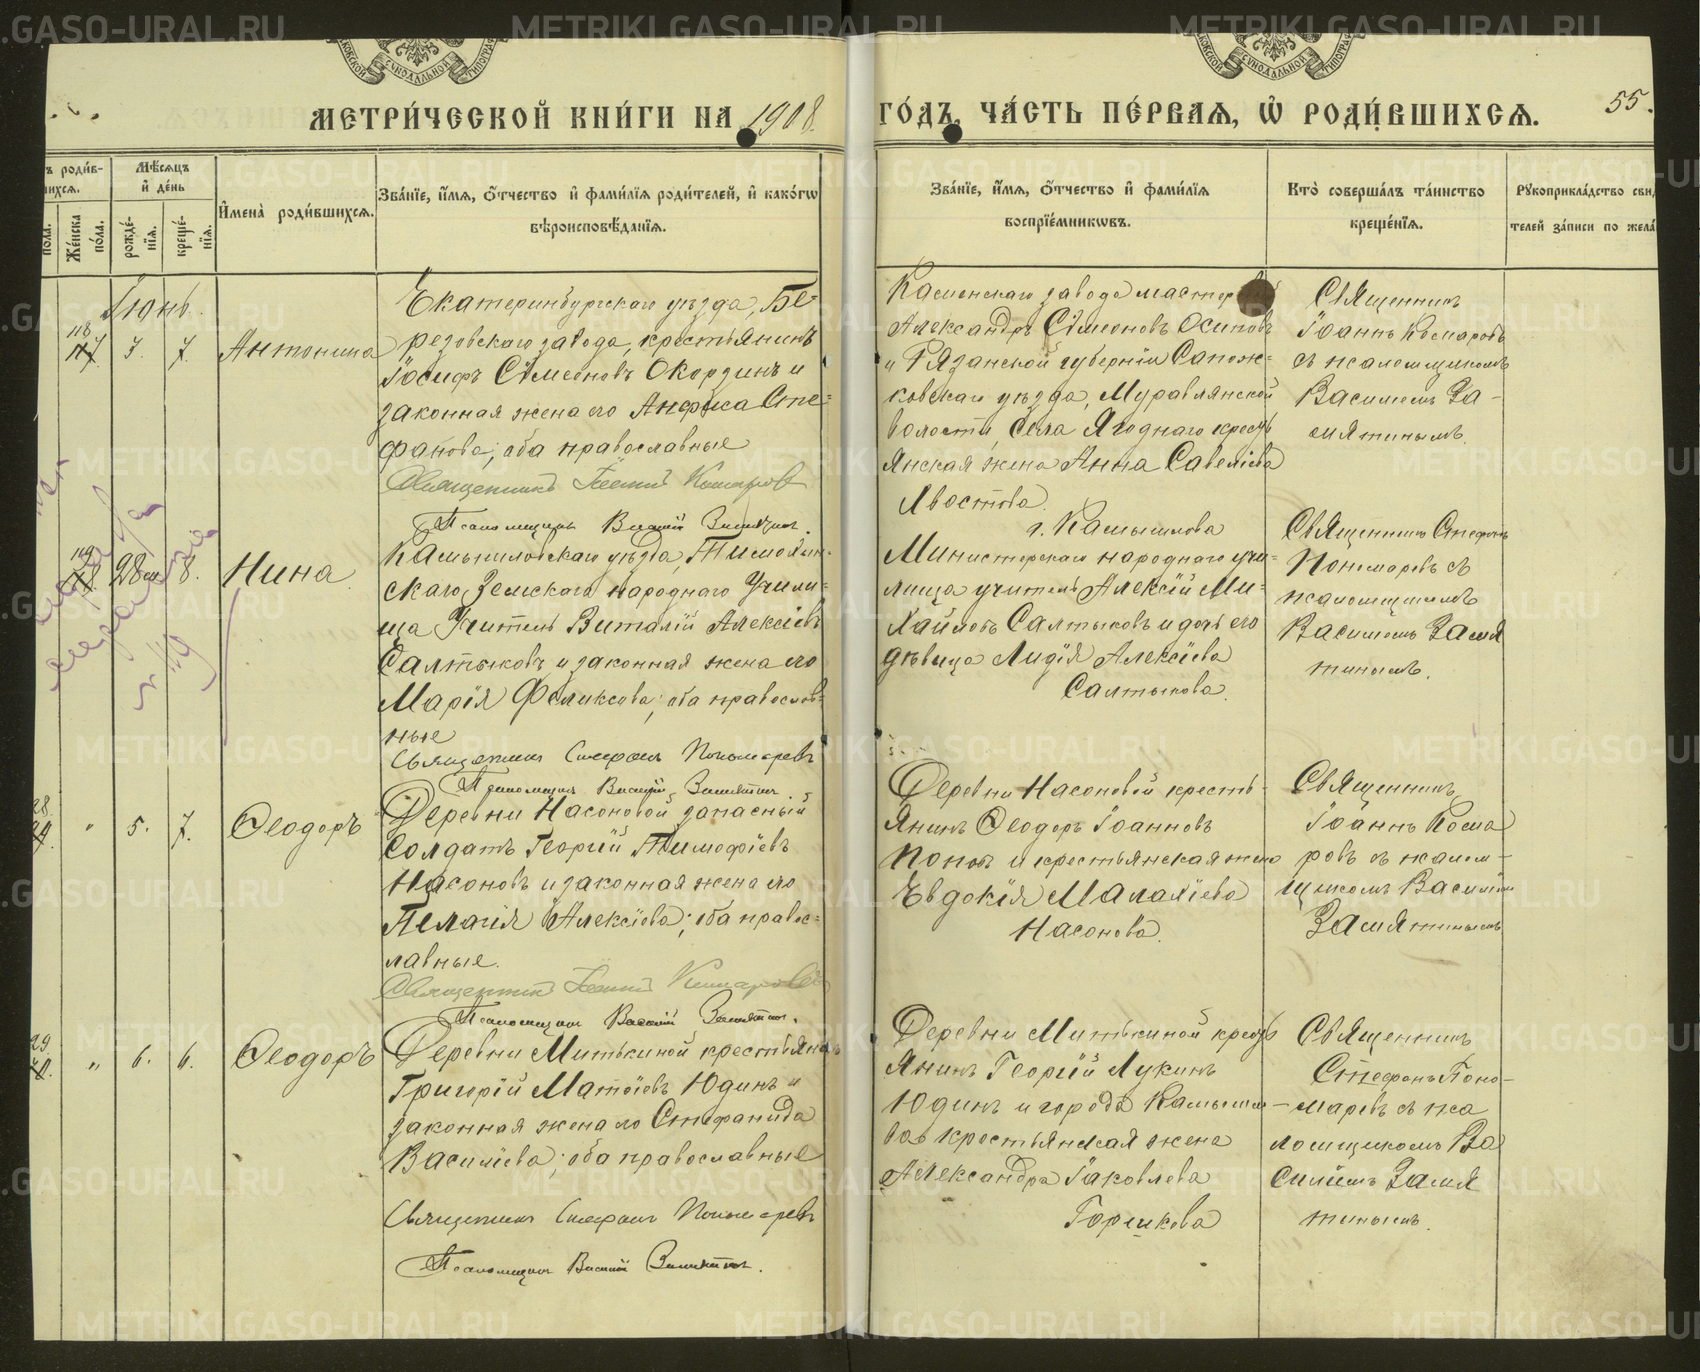 МЕТРИ́ЧЕСКОЙ КНИ́ГИ НА 1908
ГО́ДЪ, ЧА́СТЬ ПЕ́РВАѦ, Ѡ РОДИ́ВШИХСѦ.
55.
ъ роди́в-
шихсѧ.
Мѣ́сѧцъ
и҆ де́нь
пола.
Же́нска
по́ла.
рожде́-
нїѧ.
креще́-
нїѧ.
И҆мена̀ роди́вшихсѧ.
Зва́нїе, и҆́мѧ, ѻ҆́тчество и҆ фами́лїѧ роди́телей, и҆ како́гѡ
вѣроисповѣ́данїѧ.
Зва́нїе, и҆́мѧ, ѻ҆́тчество и҆ фами́лїѧ
воспрїе́мникѡвъ.
Кто̀ соверша́лъ та́инство
креще́нїѧ.
Рꙋкоприкла́дство сви
телей за́писи по жела́
Іюнь.
118
117
3.
7.
Антонина
Екатеринбургскаго уѣзда, Бе-
резовскаго завода, крестьянинъ
Іосифъ Сѵмеоновъ Окордин и
законная жена его Анфиса Сте-
фанова; оба православные
Священникъ Іоаннъ Комаровъ
Псаломщикъ Василій Замятинъ.
Каменскаго завода мастер
Александръ Сѵмеоновъ Осиповъ
и Рязанской губерніи Сапож-
ковскаго уѣзда, Муравлянской
волости, села Ягоднаго кресть
янская жена Анна Савеліева
Хвостова.
Священникъ
Іоаннъ Комаровъ
съ псаломщикомъ
Василіемъ За-
мятинымъ.
119
118
28 мая
8.
Нина
Камышловскаго уѣзда, Тимохин-
скаго Земскаго народнаго Учили-
ща Учитель Виталій Алексіевъ
Салтыковъ и законная жена его
Марія Феликсова; оба православ-
ные
Священникъ Стефанъ Пономаревъ
Псаломщикъ Василій Замятинъ.
г. Камышлова
Министерскаго народнаго учи-
лища учитель Алексій Ми-
хайловъ Салтыковъ и дочь его
дѣвица Лидія Алексіева
Салтыкова.
Священникъ Стефанъ
Пономаревъ съ
псаломщикомъ
Василіемъ Замя
тинымъ.
№ 119
28.
"
5.
7.
Ѳеодоръ
Деревни Насоновой запасный
Солдатъ Георгій Тимофіевъ
Насоновъ и законная жена его
Пелагія Алексіева; оба правос-
лавные.
Священникъ Іоаннъ Комаровъ
Псаломщикъ Василій Замятинъ.
Деревни Насоновой кресть-
янинъ Ѳеодоръ Іоанновъ
Поповъ и крестьянская жена
Евдокія Малахіева
Насонова.
Священникъ
Іоаннъ Кома
ровъ съ псалом-
щикомъ Василіем
Замятинымъ
29.
"
6.
6.
Ѳеодоръ
Деревни Митькиной крестьянинъ
Григорій Матѳіевъ Юдинъ и
законная жена его Стефанида
Василіева; оба православные
Священникъ Стефанъ Пономаревъ
Псаломщикъ Василій Замятинъ.
Деревни Митькиной кресть
янинъ Георгій Лукинъ
Юдинъ и города Камышло-
ва крестьянская жена
Александра Іаковлева
Горшкова
Священникъ
Стефанъ Поно-
маревъ съ пса
ломщикомъ Ва
силіемъ Замя
тинымъ.
METRIKI.GASO-URAL.RU